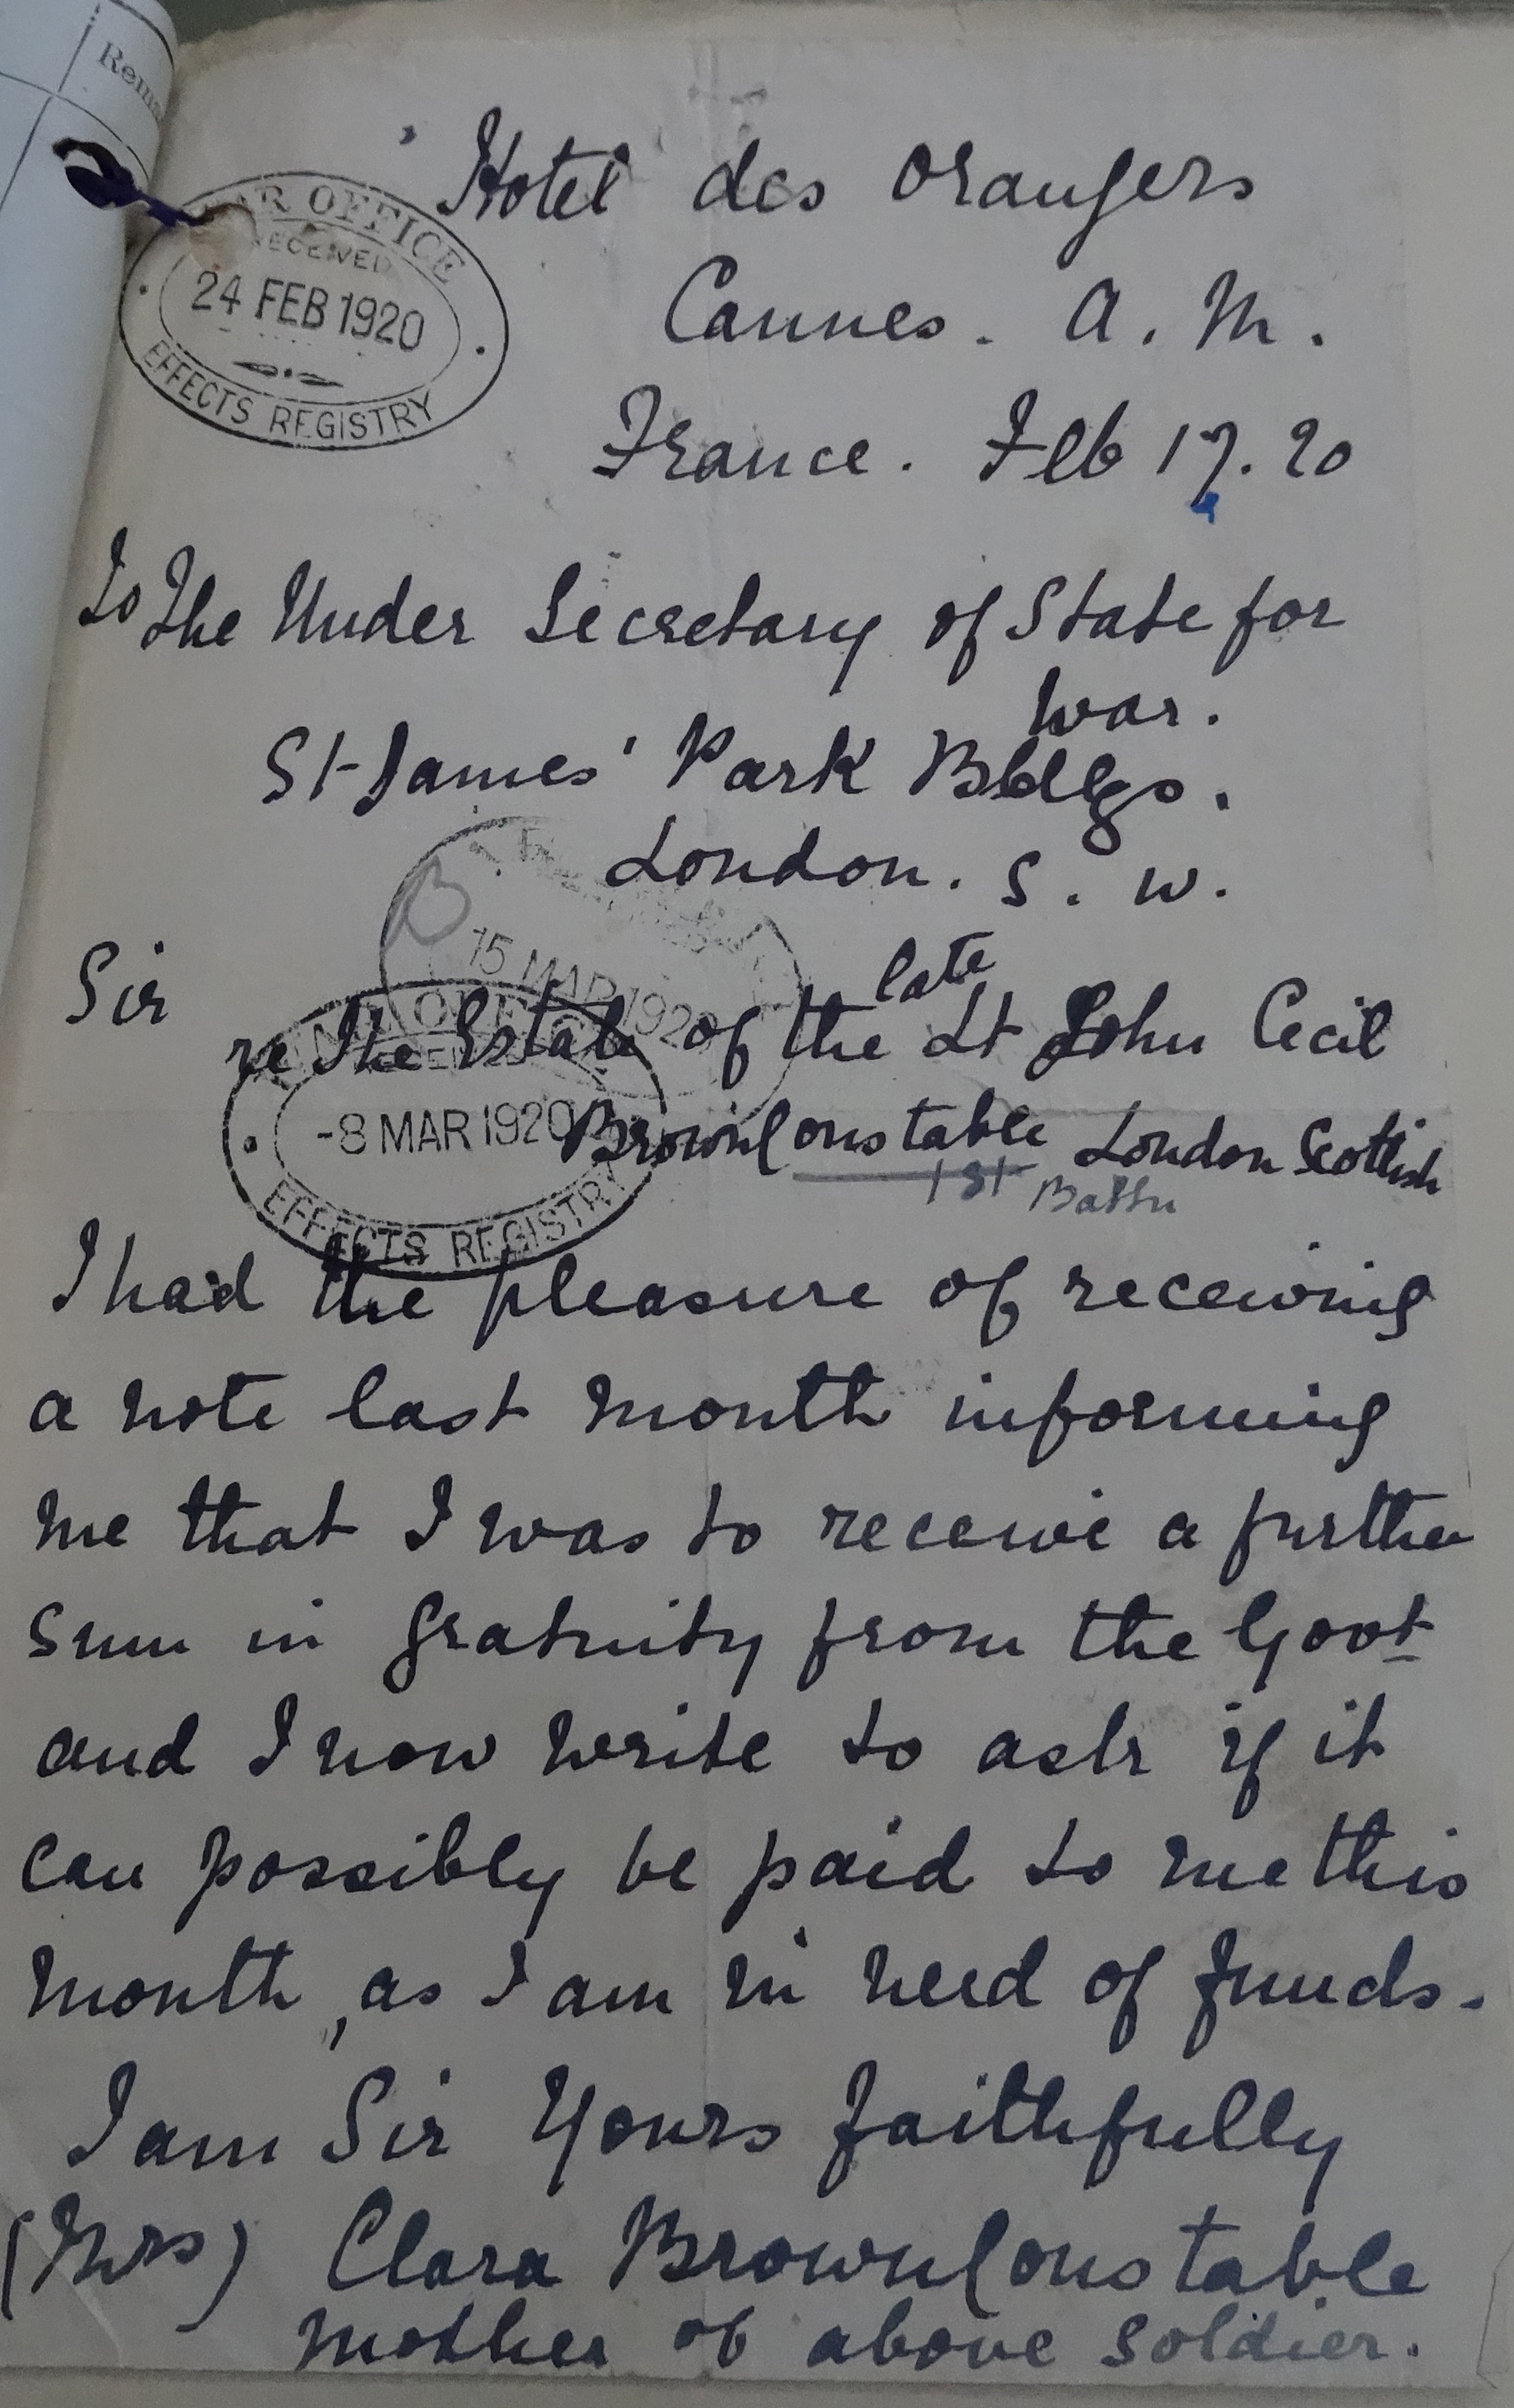 Rem
WAR OFFICE
RECEIVED
24 FEB 1920
EFFECTS REGISTRY
Hotel des Orangers
Cannes. A. M.
France. Feb 17. 20
To The Under Secretary of State for
War.
St James' Park Bldgs.
London. S. W.
B
15 MAR 1920
Sir
late
re The Estate of the Lt John Cecil
Brown Constable London Scottish
1st Battn
OFFICE
-8 MAR 1920
EFFECTS REGISTRY
I had the pleasure of receiving
a note last month informing
me that I was to receive a further
sum in gratuity from the Govt
and I now write to ask if it
can possibly be paid to me this
month, as I am in need of funds.
I am Sir Yours faithfully
(Mrs) Clara Brown Constable
mother of above soldier.